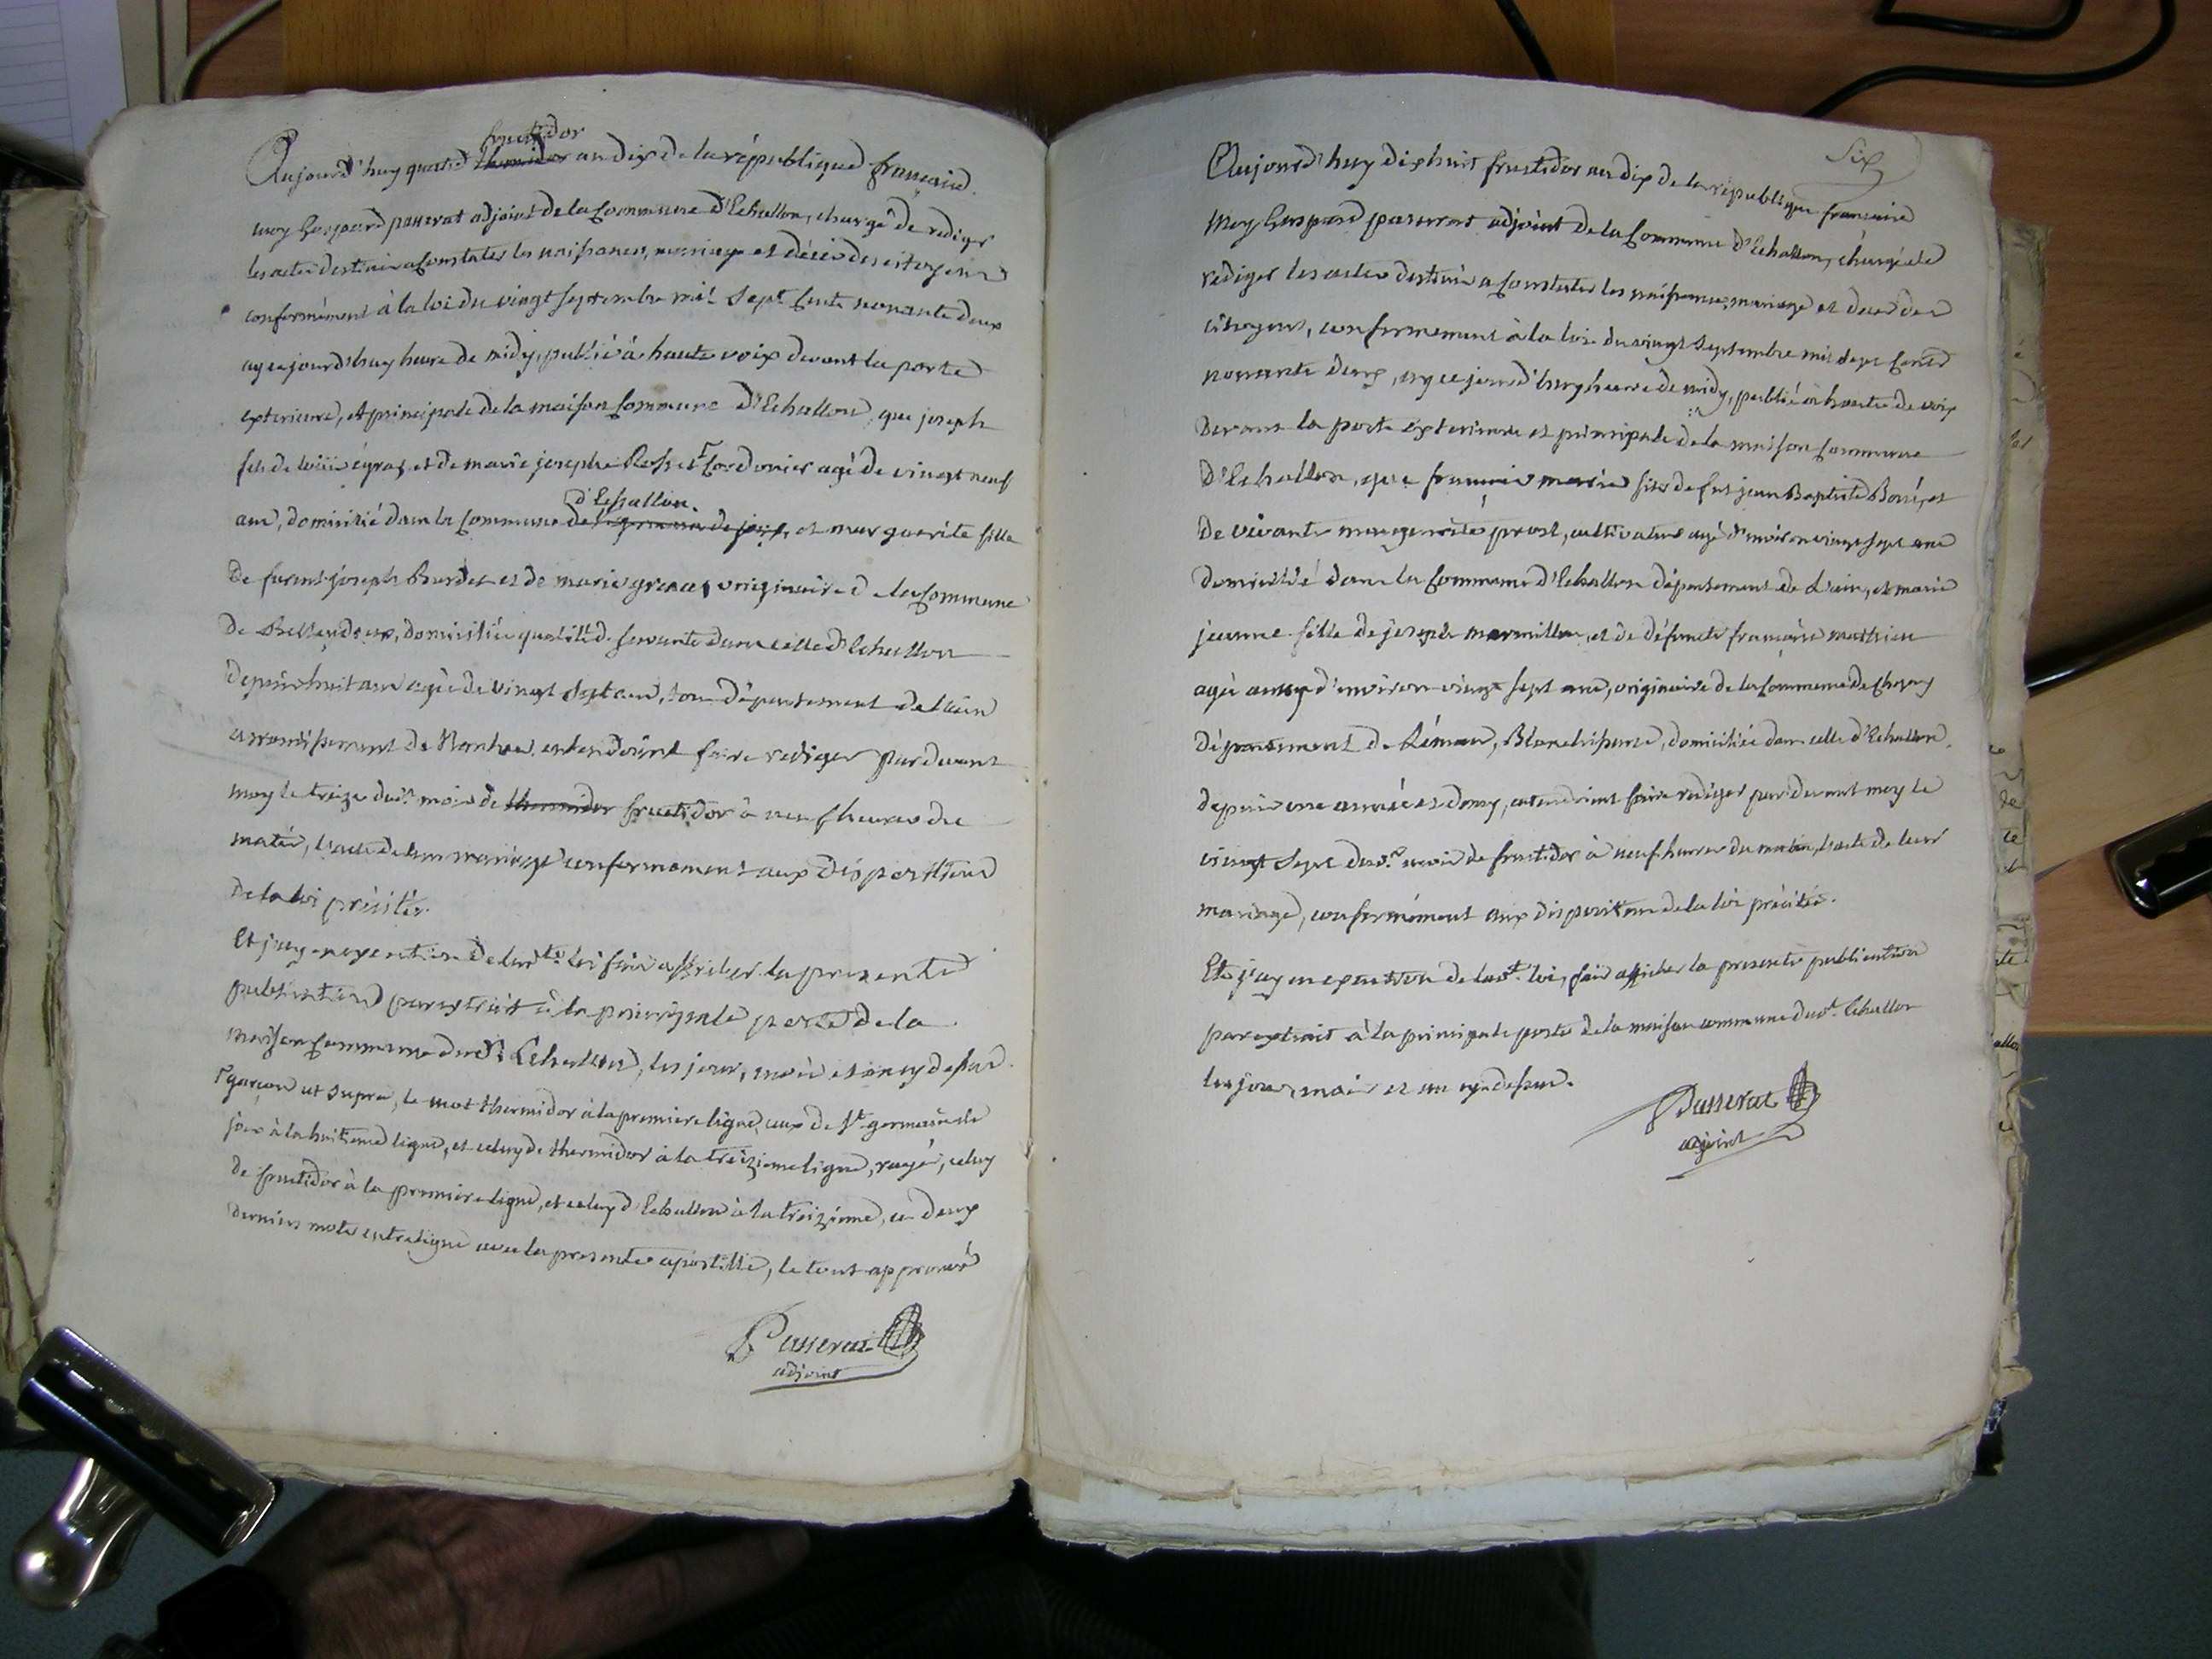 fructidor
Aujourd'huy quatre thermidor an dix de la république francaise
moy Gaspard passerat adjoint de la Commune d'Echallon, chargé de rediger
les actes destinés a Constater les naissances, mariage et décès des citoyens
conformément à la loi du vingt septembre mil sept Cents nonante deux
ay cejourd'huy heure de midy, publié à haute voix devant la porte
exterieure, et principale de la maison Commune d'Echallon, que joseph
fils de égraz, et de marie josephe Rosset Cordonier agé de vingt neuf
d'Echallon.
ans, domicilié dans la Commune de st germain de joux, et marguerite fille
de furent joseph Burdet et de marie originaire de la Commune
de Bellegdoux, domiciliée qualité de servante dans celle d'Echallon
depuis huit ans agée de vingt sept ans, tous département de l'ain
arrondissement de Nantua, entendoint faire rediger pardevant
moy le treize dud. mois de thermidor fructidor à neuf heures du
matin, l'acte de leur mariage conformement aux dispositions
de la loi précitée.
Et j'ay en execution de ladte. loi fait afficher la presente
publication par extrait à la principale porte de la
maison Commune dud. Echallon, les jour, mois et an cy dessus.
garçon ut supra, le mot thermidor à la premiere ligne, ceux de st. germain de
joux à la huitieme ligne, et celuy de thermidor à la treizieme ligne, rayés, celuy
de fructidor à la premiere ligne, et celuy d'Echallon à la treizieme, ces deux
derniers mots entreligne avec la presente apostille, le tout approuvé
Passerat
adjoint
Six
Aujourd'huy dixhuit fructidor an dix de la republique francaise
Moy Gaspard passerat adjoint de la Commune d'Echallon, chargé de
rediger les actes destinés a Constater les naissances, mariage et deces des
citoyens, conformement à la loi du vingt septembre mil sept Cents
nonante deux, ay cejourd'huy heure de midy, publié à haute de voix
devant la porte exterieure et principale de la maison Commune
d'Echallon, que francois marie fils de fut jean Baptiste et
de vivante marguerite prost, cultivateur agé d'environ vingt sept ans
domicilié dans la Commune d'Echallon département de l'ain, et marie
jeanne fille de joseph marmillon, et de défuncte francoise mathieu
agée aussy d'environ vingt sept ans, originaire de la Commune de
département de Léman, Blanchisseuse, domiciliée dans celle d'Echallon,
depuis une année et demy, entendoint faire rediger pardevant moy le
vingt sept dud. mois de fructidor à neuf heures du matin, l'acte de leur
mariage, conformément aux dispositions de la loi précitée.
Et j'ay en execution de lad. loi, fait afficher la presente publication
par extrait à la principale porte de la maison commune dud. Echallon
les jour, mois et an cy dessus.
Passerat
adjoint